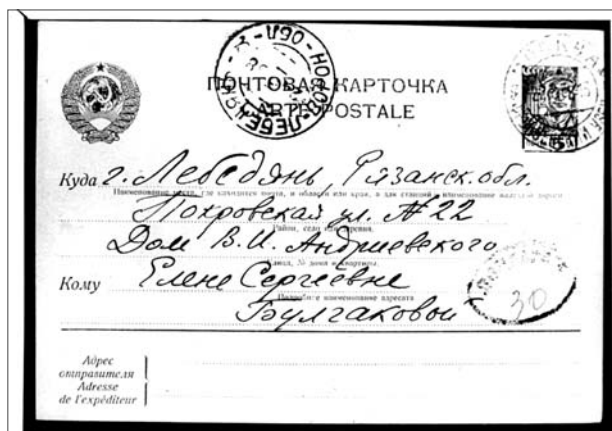 ПОЧТОВАЯ КАРТОЧКА
CARTE POSTALE
Куда г. Лебедянь, Рязанск. обл.
Наименование места, где находится почта, и области или края, а для станций - наименование железной дороги
Покровская ул. № 22
Район, село или деревня.
Дом В. И. Андриевского
Улица, № дома и квартиры.
Кому Елене Сергеевне
Подробное наименование адресата
Булгаковой
30
Адрес
отправителя
Adresse
de l'expéditeur